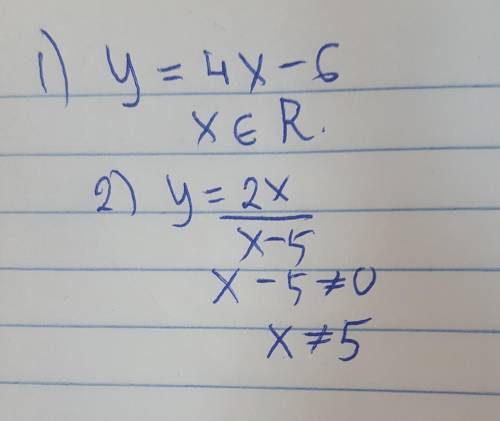 1) y = 4x - 6
x ∈ R.
2) y = 2x / x - 5
x - 5 ≠ 0
x ≠ 5